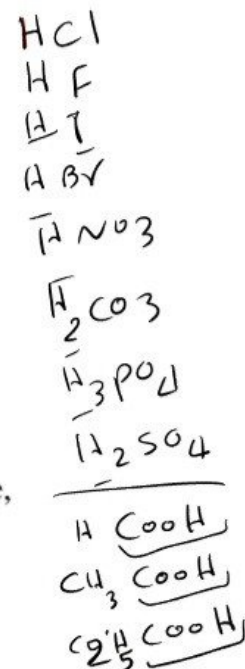 HCl
HF
HI
HBr
HNO3
H2CO3
H3PO4
H2SO4
,
HCOOH
CH3COOH
C2H5COOH